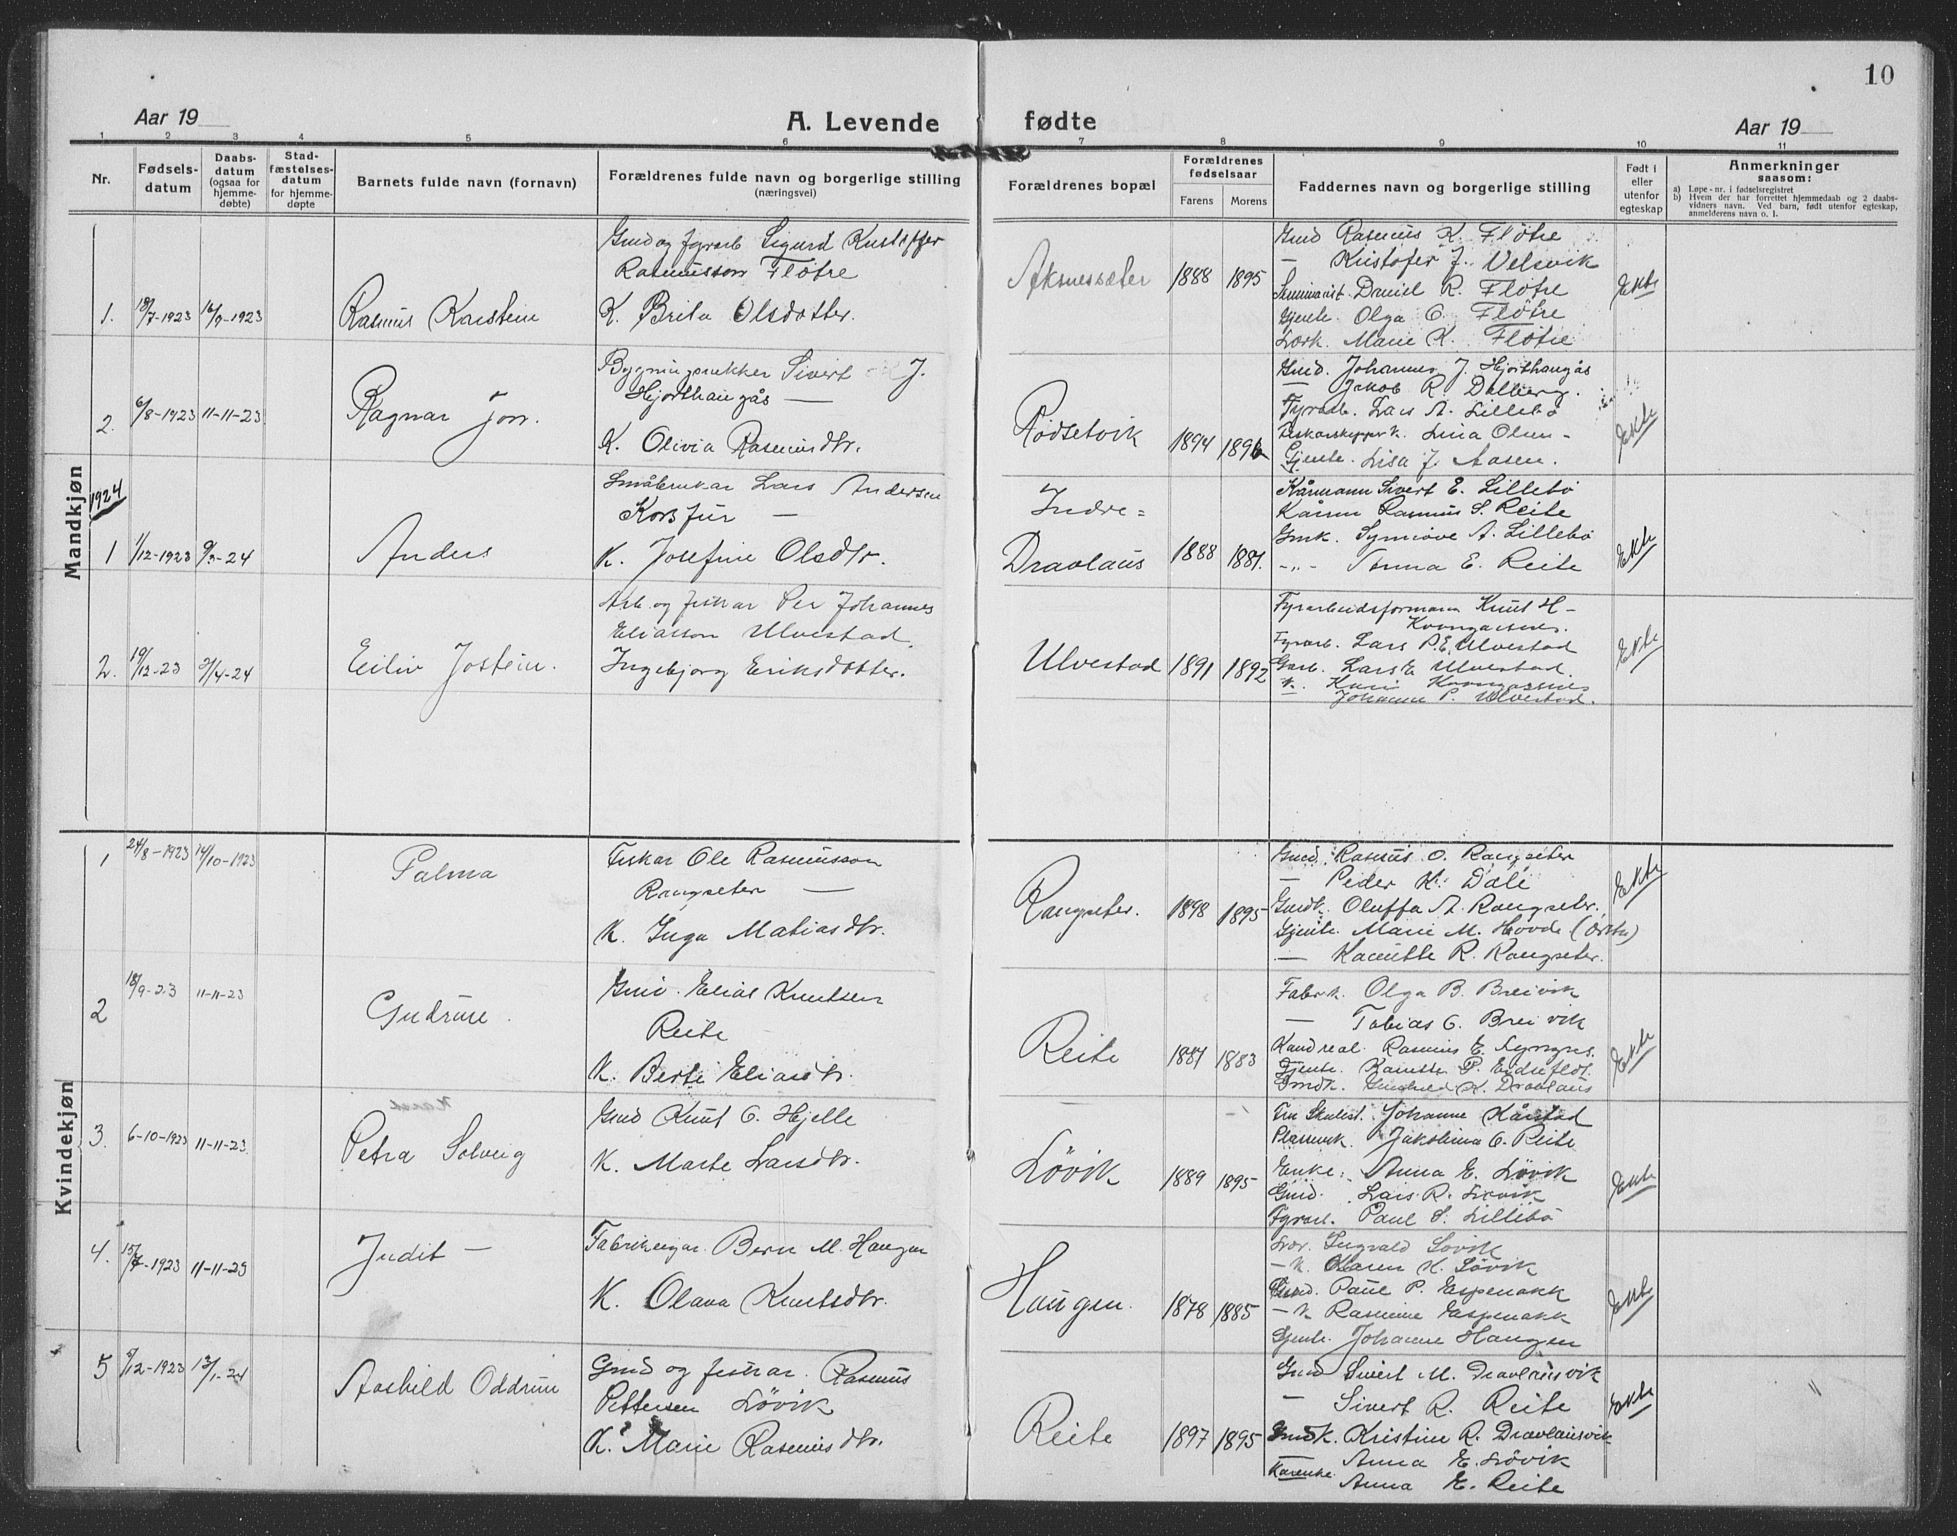 10
Aar 19
A. Levende fødte
Aar 19
1 2 3 4 5 6 7 8 9 10 11
Nr.
Fødsels-
datum
Daabs-
datum
(ogsaa for
hjemme-
døbte)
Stad-
fæstelses-
datum
for hjemme-
døpte
Barnets fulde navn (fornavn)
Forældrenes fulde navn og borgerlige stilling
(næringsvei)
Forældrenes bopæl
Forældrenes
fødselsaar
Farens Morens
Faddernes navn og borgerlige stilling
Født i
eller
utenfor
egteskap
Anmerkninger
saasom:
a) Løpe-nr. i fødselsregistret
b) Hvem der har forrettet hjemmedaab og 2 daabs-
vidners navn. Ved barn, født utenfor egteskap,
anmelderens navn o. l.
Mandkjøn
1. 18/7-1923 16/9-1923
Rasmus Karstein
Gmd og fyrarb Sigurd Kristoffer
Rasmusson Fløtre
K. Brita Olsdotter.
Aksnessæter
1888 1895
Gmd Rasmus K. Fløtre
— Kristofer J. Velsvik
Seminarist. Daniel R. Fløtre
Gjente. Olga O. Fløtre
Lærk. Marie K. Fløtre
Ekte
2. 6/8-1923 11-11-23
Ragnar Jon.
Sivert J.
Hjorthaugås —
K. Olivia Rasmusdtr.
Rødsetvik
1894 1896
Gmd. Johannes J Hjorthaugås
— Jakob R. Dalberg.
Fyrarb. Lars A. Lillebø
Fiskarskipperk. Lina Olsen -
Gjente. Lisa J. Aasen.
Ekte
1924
1 1/12-1923 9/3-24
Anders
Småbrukar Lars Andersen
Korsfur —
K. Josefine Olsdtr.
Indre=
Dravlaus
1888 1881.
Kårmann Sivert E. Lillebø
Kårm Rasmus S. Reite
Gmk. Synnøve A. Lillebø
-"- Anna E. Reite
Ekte
2. 19/12-23 2/4-24
Eiliv Jostein.
Arb. og fiskar Per Johannes
Eliasson Ulvestad.
Ingebjorg Eriksdotter.
Ulvestad
1891 1892
Fyrarbeidsformann Knut H-
Kongsnes.
Fyrarb. Lars P.E. Ulvestad
Garb. Lars E Ulvestad.
K. Kari
— Johanne P. Ulvestad.
Ekte
Kvindekjøn
1 24/8-1923 14/10-1923
Palma
Fiskar Ole Rasmusson
Rangseter —
K. Inga Matiasdtr.
Rangseter.
1898 1895
Gmd. Rasmus O. Rangseter
— Peder K. Dale
Gmdk. Oluffa A. Rangseter.
Gjente. Marie M. Hovde (Ørsta)
— Kamitte R. Rangseter.
Ekte
2 18/9-23 11-11-23
Gudrun.
Gmd. Elias Knutsen
Reite
K. Berte Eliasdtr.
Reite
1881 1883
Fabr.k. Olga B. Breivik
— Tobias G. Breivik
Kand real. Rasmus E.
Gjente. P. Eidseflot.
Gmdk. Gunhild K. Dravlaus
Ekte
3. 6-10-1923 11-11-23.
Petra Solveig
Gmd Knut O. Hjelle
K. Marte Larsdtr.
Løvik
1889 1895
Fru Skulest. Johanne Kårstad
Jakobina O. Reite
Enke. Anna E. Løvik
Gmd. Lars R. Løvik
Fyrarb. Paul S. Lillebø
Ekte
4. 15/7-1923 11-11-23
Judit —
Fabrikeigar. Bern M. Haugen
K. Olava Knutsdtr.
Haugen.
1878 1885
Lær. Ingvald Løvik
-k. Maren K. Løvik
Gmd. Paul P. Espenakk
-k Rasmine Espenakk
Gjente. Johanne Haugen
Ekte
5 9/12-1923 13/1-24
Aashild Oddrun
Gmd og fiskar. Rasmus
Pettersen Løvik
K. Marie Rasmusdtr.
Reite
1897 1895
Gmd Sivert M. Dravlausvik
— Sivert R. Reite
Gmdk. Kristine R. Dravlausvik
— Anna E. Løvik
Kårenke. Anna E. Reite
Ekte